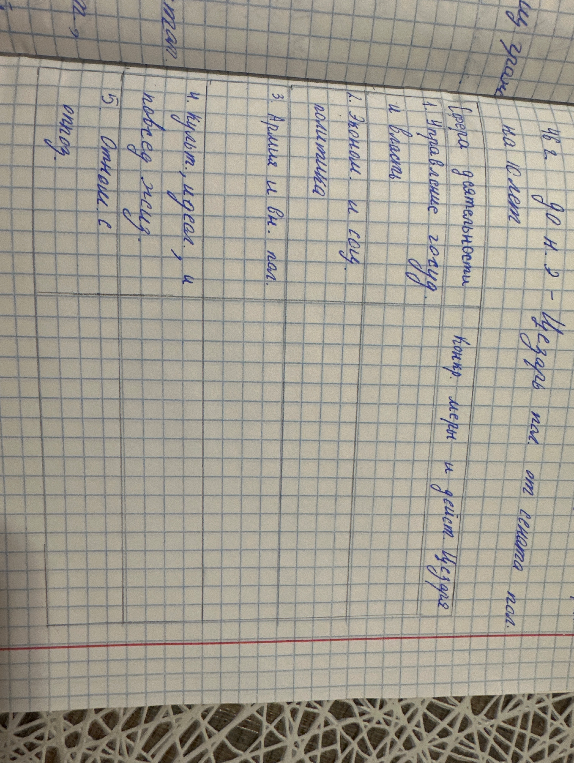 46 г до н.э - Цезарь пол. от сената пол.
на 10 лет
Сфера деятельности Конкр. меры и дейст Цезаря
1. Управление госуд.
и власть
2. Эконом. и соц.
политика
3. Армия и вн. пол.
4. Культ., идеол., и
повсед жизд.
5. Отнош с